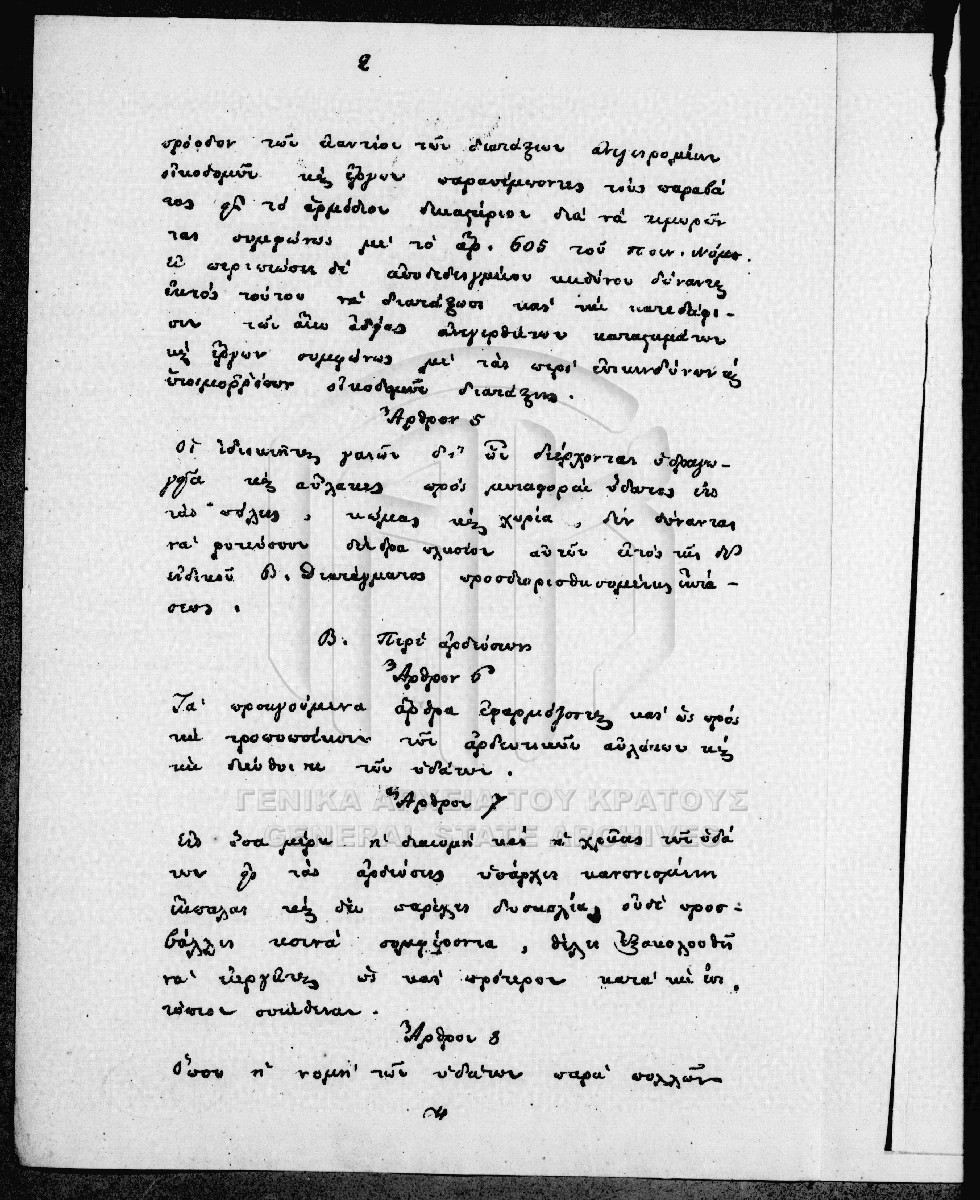 2
πρόοδον τῶν ἐναντίον τῶν διατάξεων ἀνεγειρομένων
οἰκοδομῶν καὶ ἔργων παραπέμποντες τοὺς παραβά
τας εἰς τὸ ἁρμόδιον δικαστήριον διὰ νὰ τιμωρῶν
ται συμφώνως μὲ τὸ ἄρ. 605 τοῦ Ποιν. Νόμου.
Ἐν περιπτώσει δὲ ἀποδεδειγμένου κινδύνου δύνανται
ἐκτὸς τούτου νὰ διατάξωσι καὶ τὴν κατεδάφι-
σιν τῶν ἄνευ ἀδείας ἀνεγερθέντων καταστημάτων
καὶ ἔργων συμφώνως μὲ τὰς περὶ ἐπικινδύνων καὶ
ἑτοιμορρόπων οἰκοδομῶν διατάξεις.
Ἄρθρον 5
Οἱ ἰδιοκτῆται γαιῶν δι' ὧν διέρχονται ὑδραγω-
γεῖα καὶ αὔλακες πρὸς μεταφορὰν ὕδατος εἰς
τὰς πόλεις, κώμας καὶ χωρία, δὲν δύνανται
νὰ φυτεύσουν δένδρα πλησίον αὐτῶν ἐντὸς τῆς δι'
εἰδικοῦ Β. Διατάγματος προσδιορισθησομένης ἐκτά-
σεως.
Β. Περὶ ἀρδεύσεως
Ἄρθρον 6
Τὰ προηγούμενα ἄρθρα ἐφαρμόζονται καὶ ὡς πρὸς
τὴν τροποποίησιν τῶν ἀρδευτικῶν αὐλάκων καὶ
τὴν διεύθυνσιν τῶν ὑδάτων.
Ἄρθρον 7
Εἰς ὅσα μέρη ἡ διανομὴ καὶ ἡ χρῆσις τῶν ὑδά
των εἰς τὰς ἀρδεύσεις ὑπάρχει κανονισμένη
ἔκπαλαι καὶ δὲν παρέχει δυσκολίας οὐδὲ προσ-
βάλλει κοινὰ συμφέροντα, θέλει ἐξακολουθῆ
νὰ ἐνεργῆται ὡς καὶ πρότερον κατὰ τὴν ἐπι
τόπιον συνήθειαν.
Ἄρθρον 8
Ὅπου ἡ νομὴ τῶν ὑδάτων παρὰ πολλῶν
ΓΕΝΙΚΑ ΑΡΧΕΙΑ ΤΟΥ ΚΡΑΤΟΥΣ
GENERAL STATE ARCHIVES